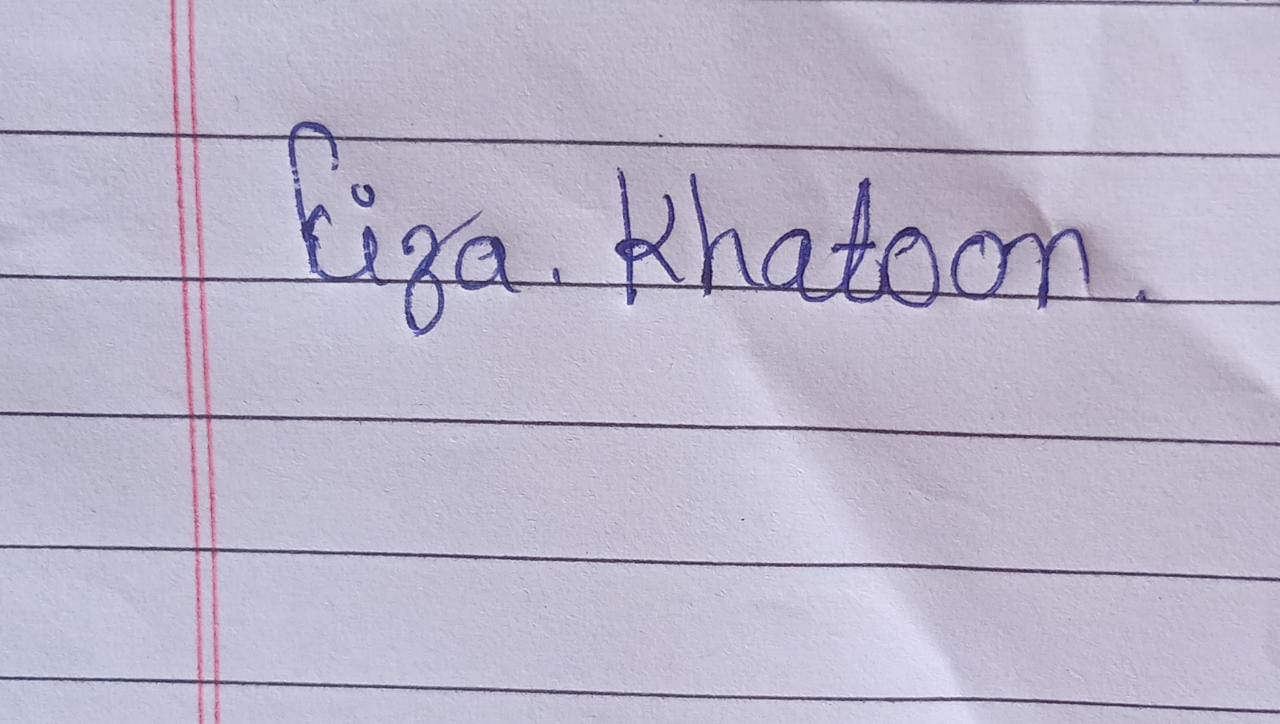 Fiza. Khatoon.